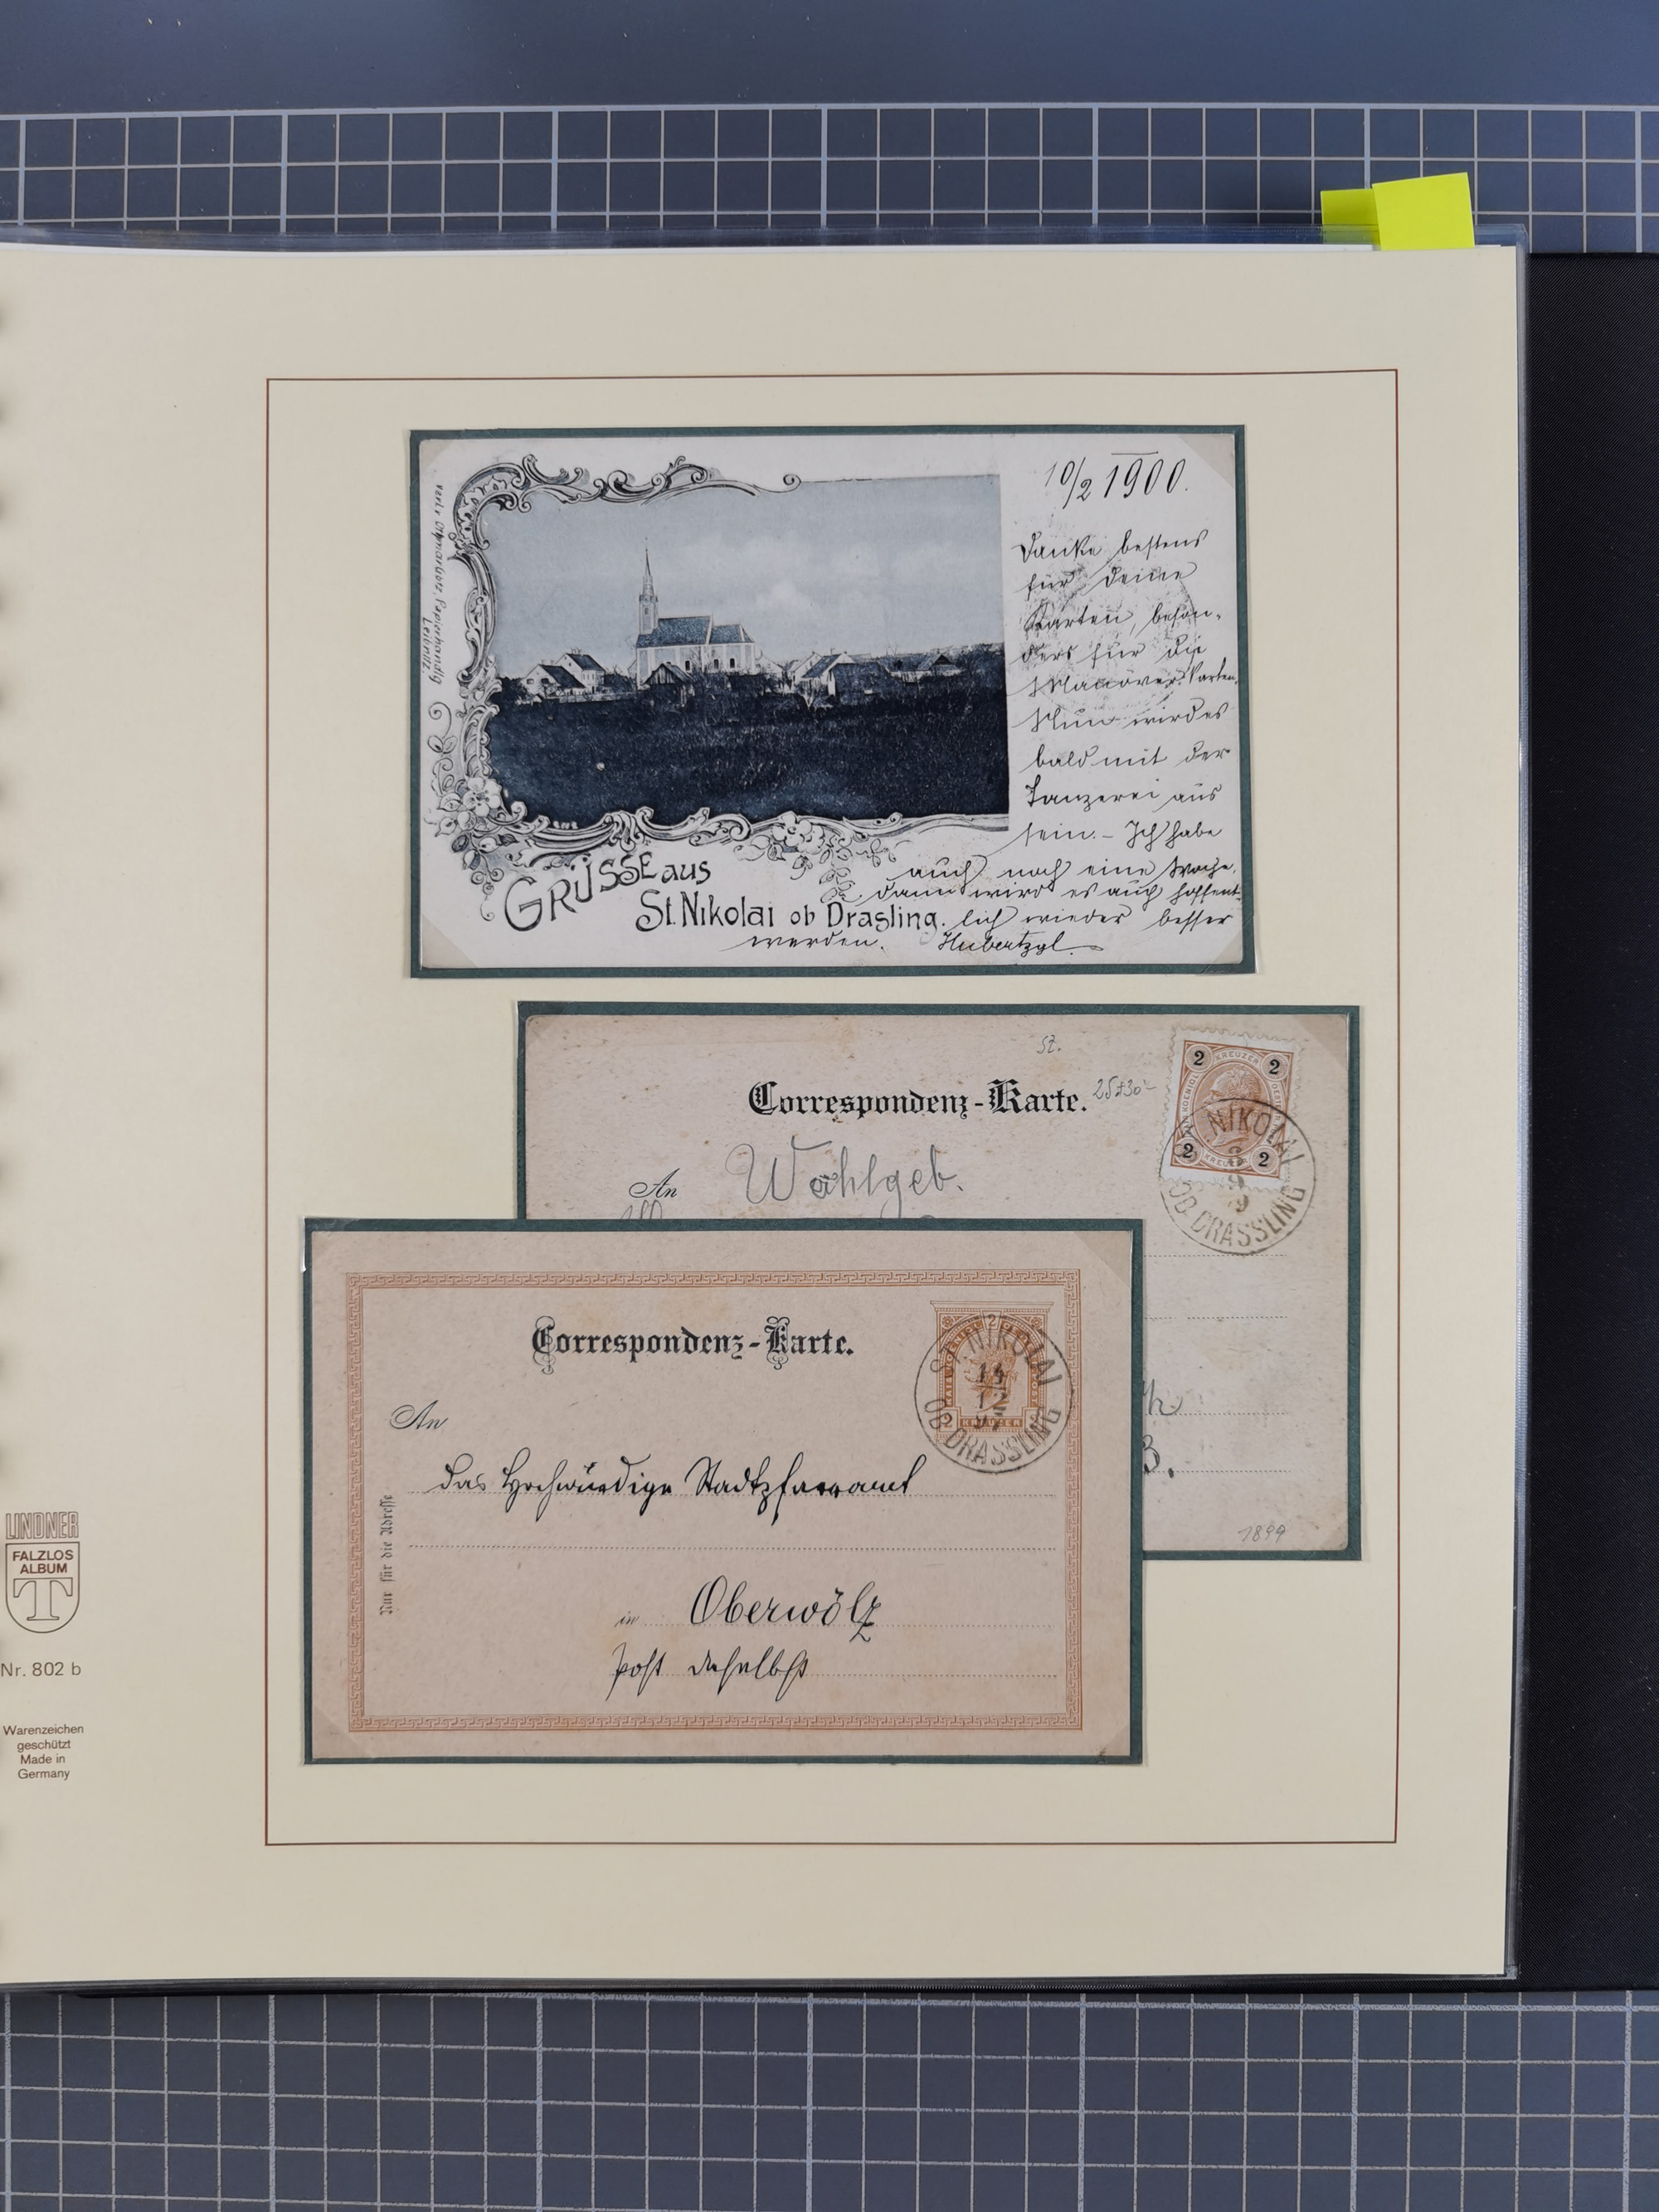 10/2 1900.
Danke bestens
für Deine
Karten, beson-
ders für die
Manöver-Karten.
Nun wird es
bald mit der
Tanzerei aus
sein. – Ich habe
auch noch eine Woche,
dann wird es auch hoffent-
lich wieder besser
werden.
Papierhandlg
Leibnitz.
GRÜSSE aus
St. Nikolai ob Drasling.
St.
Correspondenz-Karte.
An Wohlgeb.
2 KREUZER 2
2 KREUZER 2
NIKOLAI
OB. DRASSLING
B.
1899
Correspondenz-Karte.
2
KREUZER
ST. NIKOLAI
14
12
OB. DRASSLING
An
das Hochwürdige Stadtpfarramt
Nur für die Adresse
in Oberwölz
Post daselbst
LINDNER
FALZLOS
ALBUM
T
Nr. 802 b
Warenzeichen
geschützt
Made in
Germany